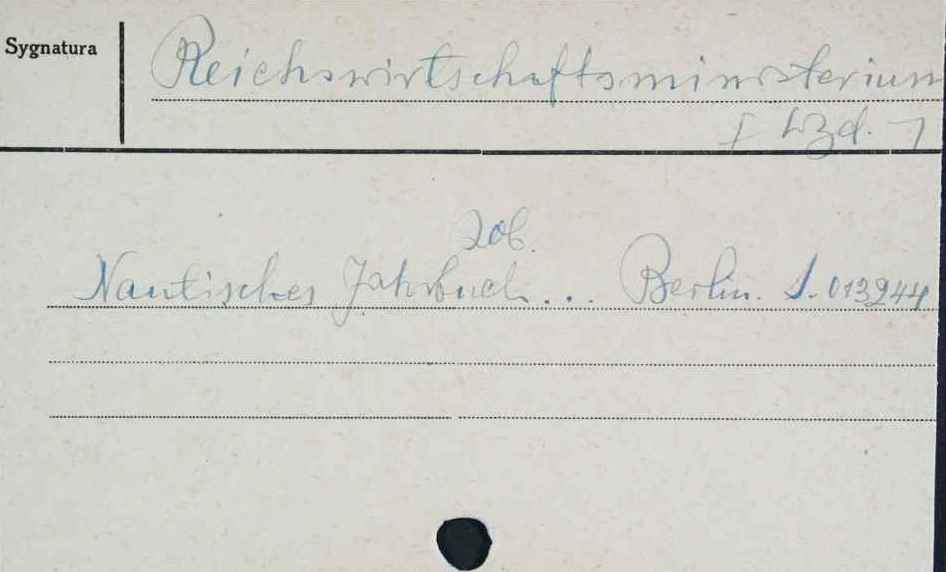 Sygnatura
Reichswirtschaftsministerium
[ Wyd. ]
zob.
Nautisches Jahrbuch... Berlin. S. 013244